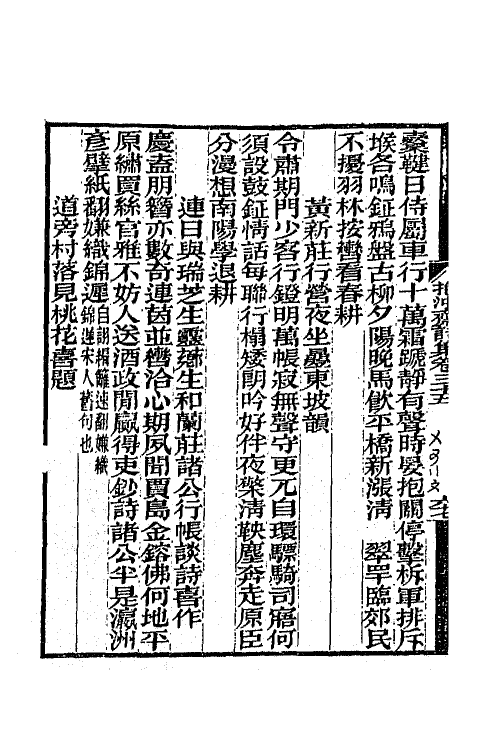 櫜鞬日侍屬車行十萬霜蹏靜有聲時晏抱關停擊柝軍排斥
堠各鳴鉦鴉盤古柳夕陽晚馬飲平橋新漲淸　翠罕臨郊民
不擾羽林按轡看春耕
黃新莊行營夜坐疊東坡韻
令肅期門少客行鐙明萬帳寂無聲守更兀自環驃騎司寤何
須設鼓鉦情話每聯行榻矮朗吟好伴夜檠淸鞅塵奔走原臣
分漫想南陽學退耕
連日與瑞芝生生和蘭莊諸公行帳談詩喜作
慶盍朋簪亦數奇連茵並轡洽心期夙聞賈島金鎔佛何地平
原繡買絲官雅不妨人送酒政閒贏得吏鈔詩諸公半是瀛洲
彥擘紙翻嫌織錦遲自詡緝雖速翻嫌織錦遲宋人舊句也
道旁村落見桃花喜題
抱沖齋詩集卷三十五